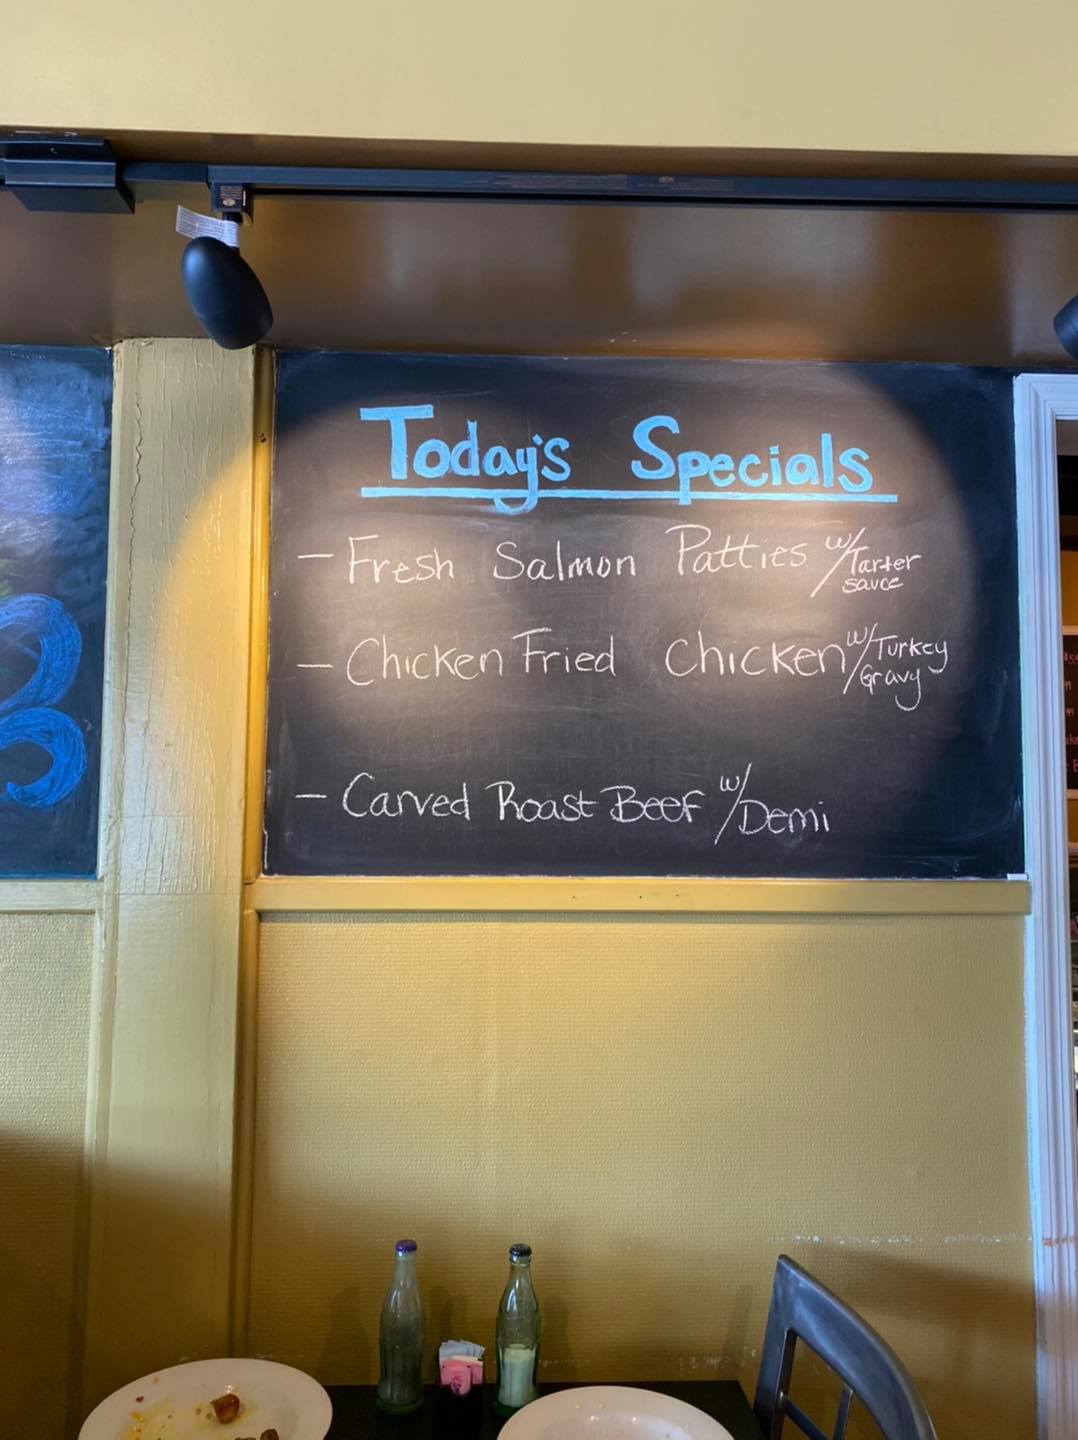 Today's Specials
- Fresh Salmon Patties w/Tarter
sauce
- Chicken Fried Chicken w/Turkey
Gravy
- Carved Roast Beef w/Demi